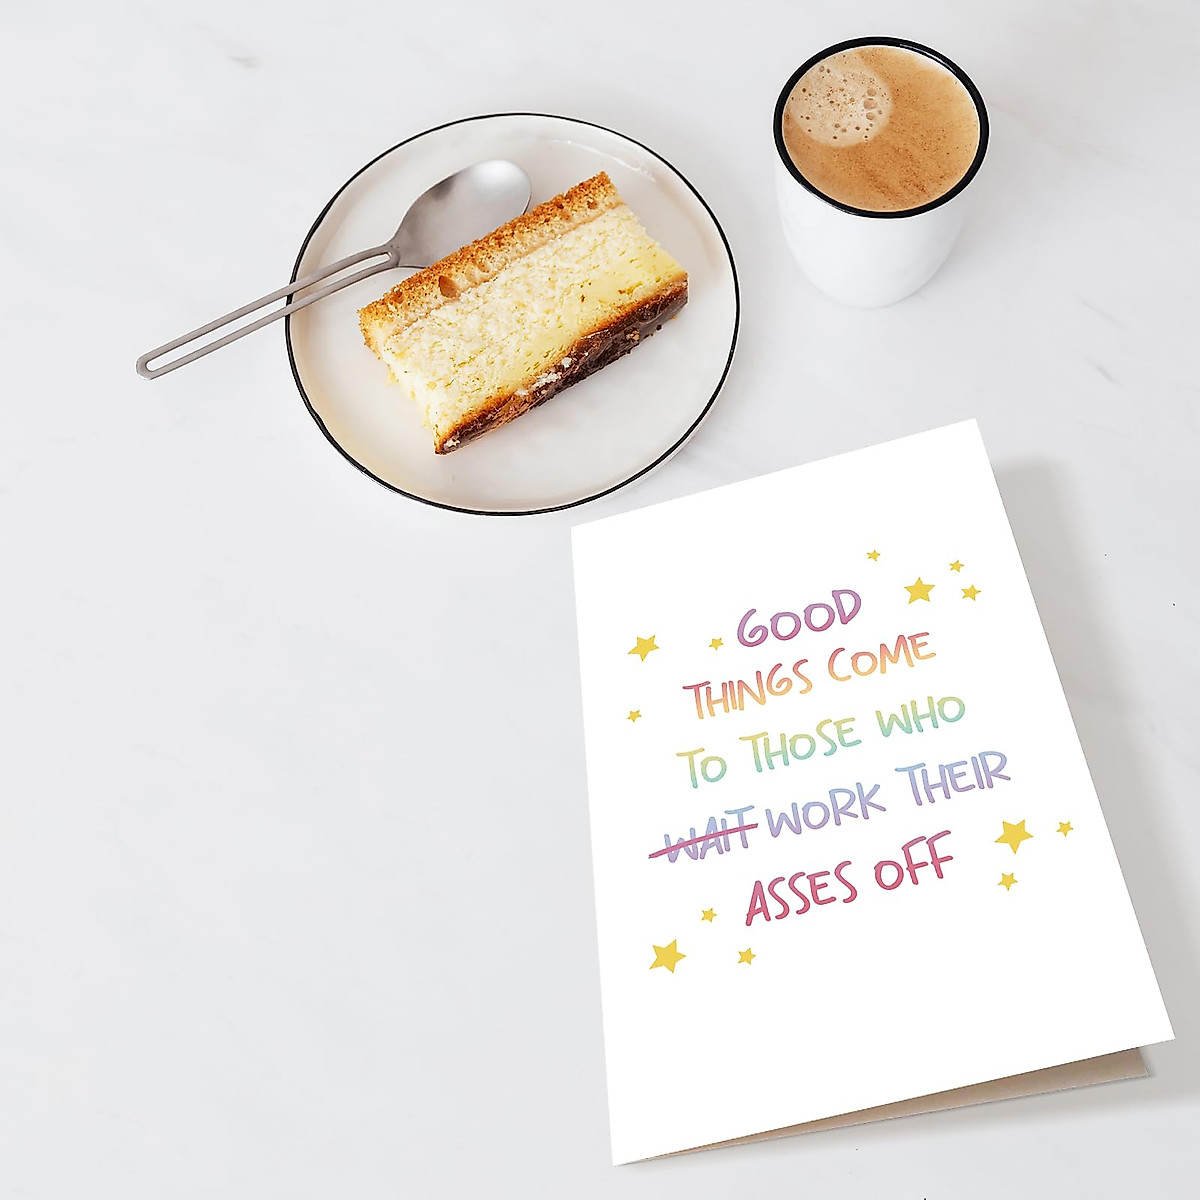 GOOD
THINGS COME
TO THOSE WHO
WAIT WORK THEIR
ASSES OFF